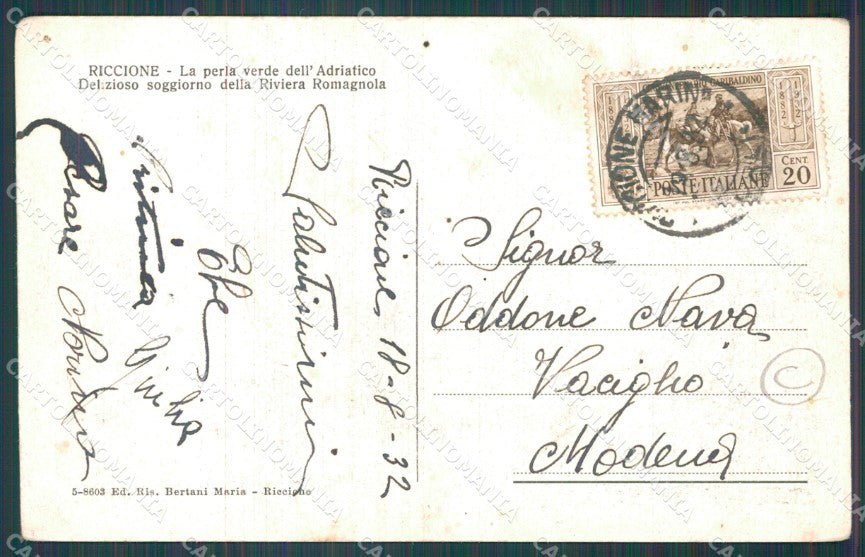 RICCIONE - La perla verde dell'Adriatico
Delizioso soggiorno della Riviera Romagnola
Riccione, 18-8-32
Salutissimi
Ebe
Giulia
Cesare
5-8603 Ed. Ris. Bertani Maria - Riccione
GARIBALDINO
1882
1932
CENT.
POSTE ITALIANE 20
RICCIONE MARINA
Signor
Oddone Nava
Vaciglio
Modena
C
CARTOLINOMANIA